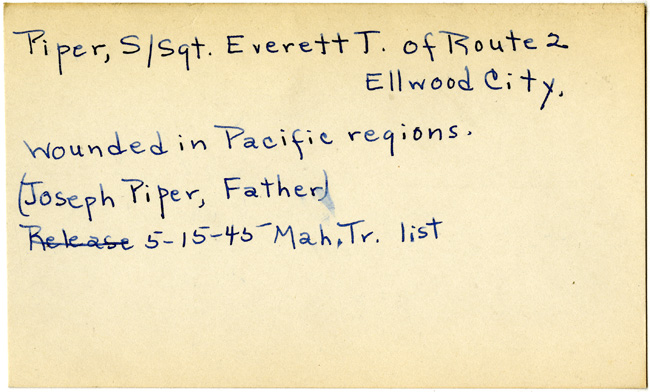 Piper, S/Sgt. Everett T. of Route 2
Ellwood City,
Wounded in Pacific regions.
(Joseph Piper, Father)
Release 5-15-45 Mah. Tr. list